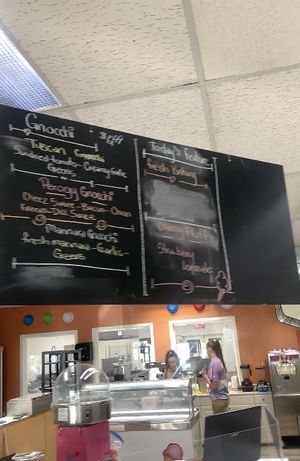 Gnocchi
Tuscan Gnocchi
Sundried tomato - Creamy Garlic
Greens
Perogy Gnocchi
Cheez Sauce - Bacon - Onion
Green Dill Sauce
Marinara Gnocchi
fresh marinara - Garlic -
Greens
Today's feature
fresh Baking
Strawberry
lemonade